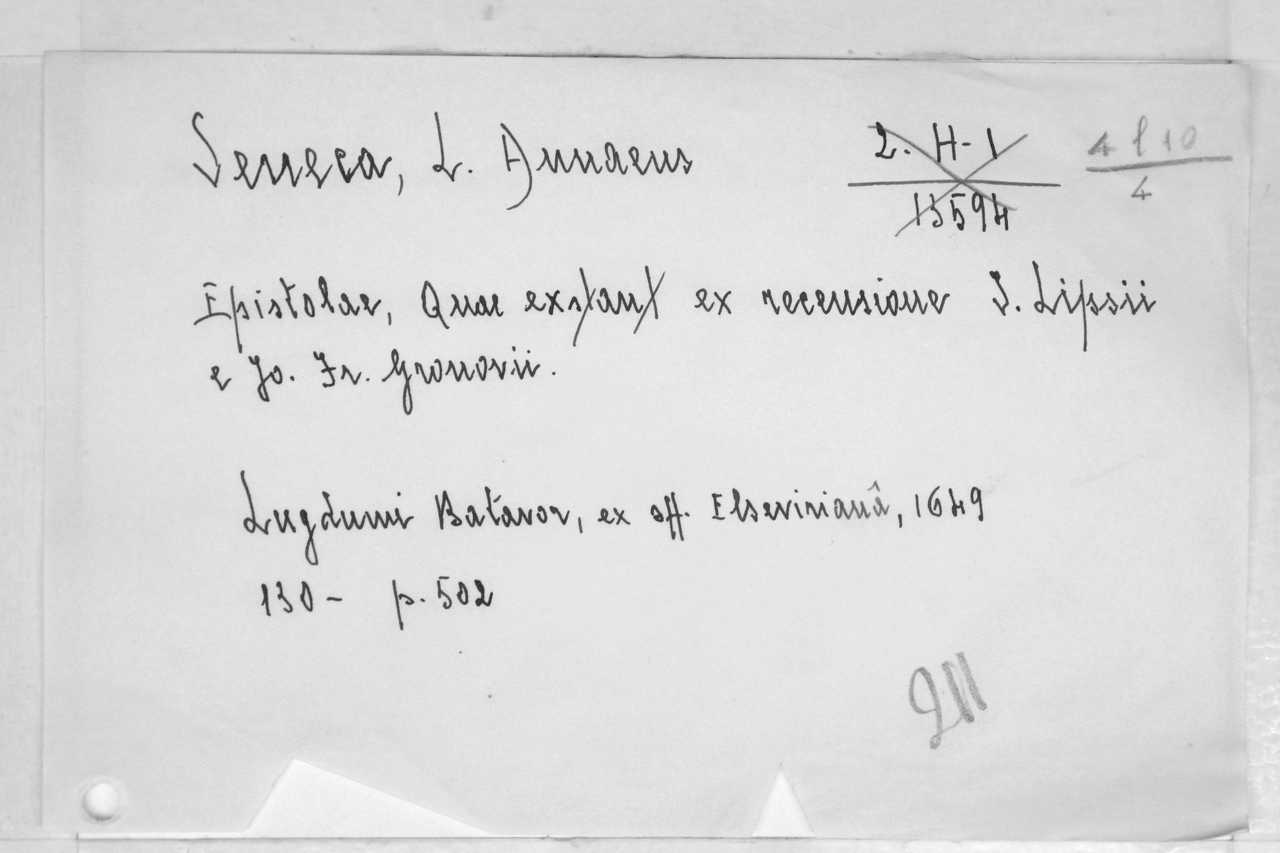 Seneca, L. Annaeus
2. H-1
13594
4 l 10
4
Epistolae, Quae exstant ex recensione I. Lipsii
e Jo. Fr. Gronovii.
Lugdumi Batavor, ex off. Elsevirianâ, 1649
130- p. 502